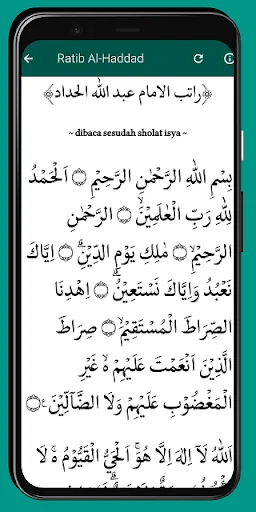 Ratib Al-Haddad
﴿راتب الامام عبد الله الحداد﴾
~ dibaca sesudah sholat isya ~
بِسْمِ اللهِ الرَّحْمٰنِ الرَّحِيْمِ ۝ اَلْحَمْدُ
لِلّٰهِ رَبِّ الْعٰلَمِيْنَۙ ۝ الرَّحْمٰنِ
الرَّحِيْمِۙ ۝ مٰلِكِ يَوْمِ الدِّيْنِۗ ۝ اِيَّاكَ
نَعْبُدُ وَاِيَّاكَ نَسْتَعِيْنُۗ ۝ اِهْدِنَا
الصِّرَاطَ الْمُسْتَقِيْمَۙ ۝ صِرَاطَ
الَّذِيْنَ اَنْعَمْتَ عَلَيْهِمْ ە غَيْرِ
الْمَغْضُوْبِ عَلَيْهِمْ وَلَا الضَّاۤلِّيْنَ ۝
اَللهُ لَآ اِلٰهَ اِلَّا هُوَۚ اَلْحَيُّ الْقَيُّوْمُ ەۚ لَا